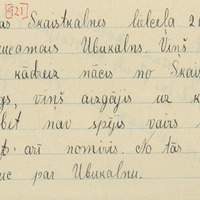 521
as Skaistkalnes lielceļa 2 k
ucamais Ubukalns. Viņš
kādus nācis no Skais
gs, viņš aizgējis uz k
bet nav spējis vairs
arī nomiris. No tās
uc par Ubukalnu.